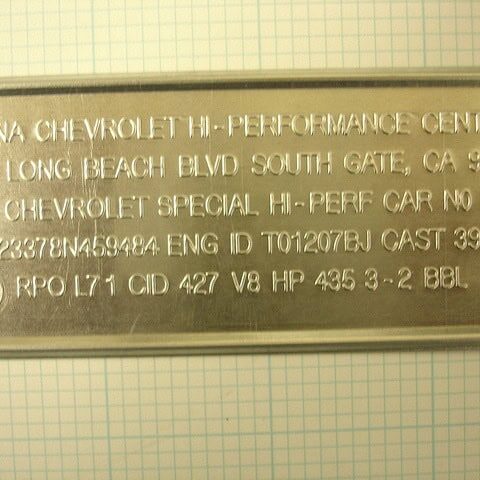 NA CHEVROLET HI-PERFORMANCE CENT
LONG BEACH BLVD SOUTH GATE, CA 9
CHEVROLET SPECIAL HI-PERF CAR NO
23378N459484 ENG ID T01207BJ CAST 39
RPO L71 CID 427 V8 HP 435 3-2 BBL